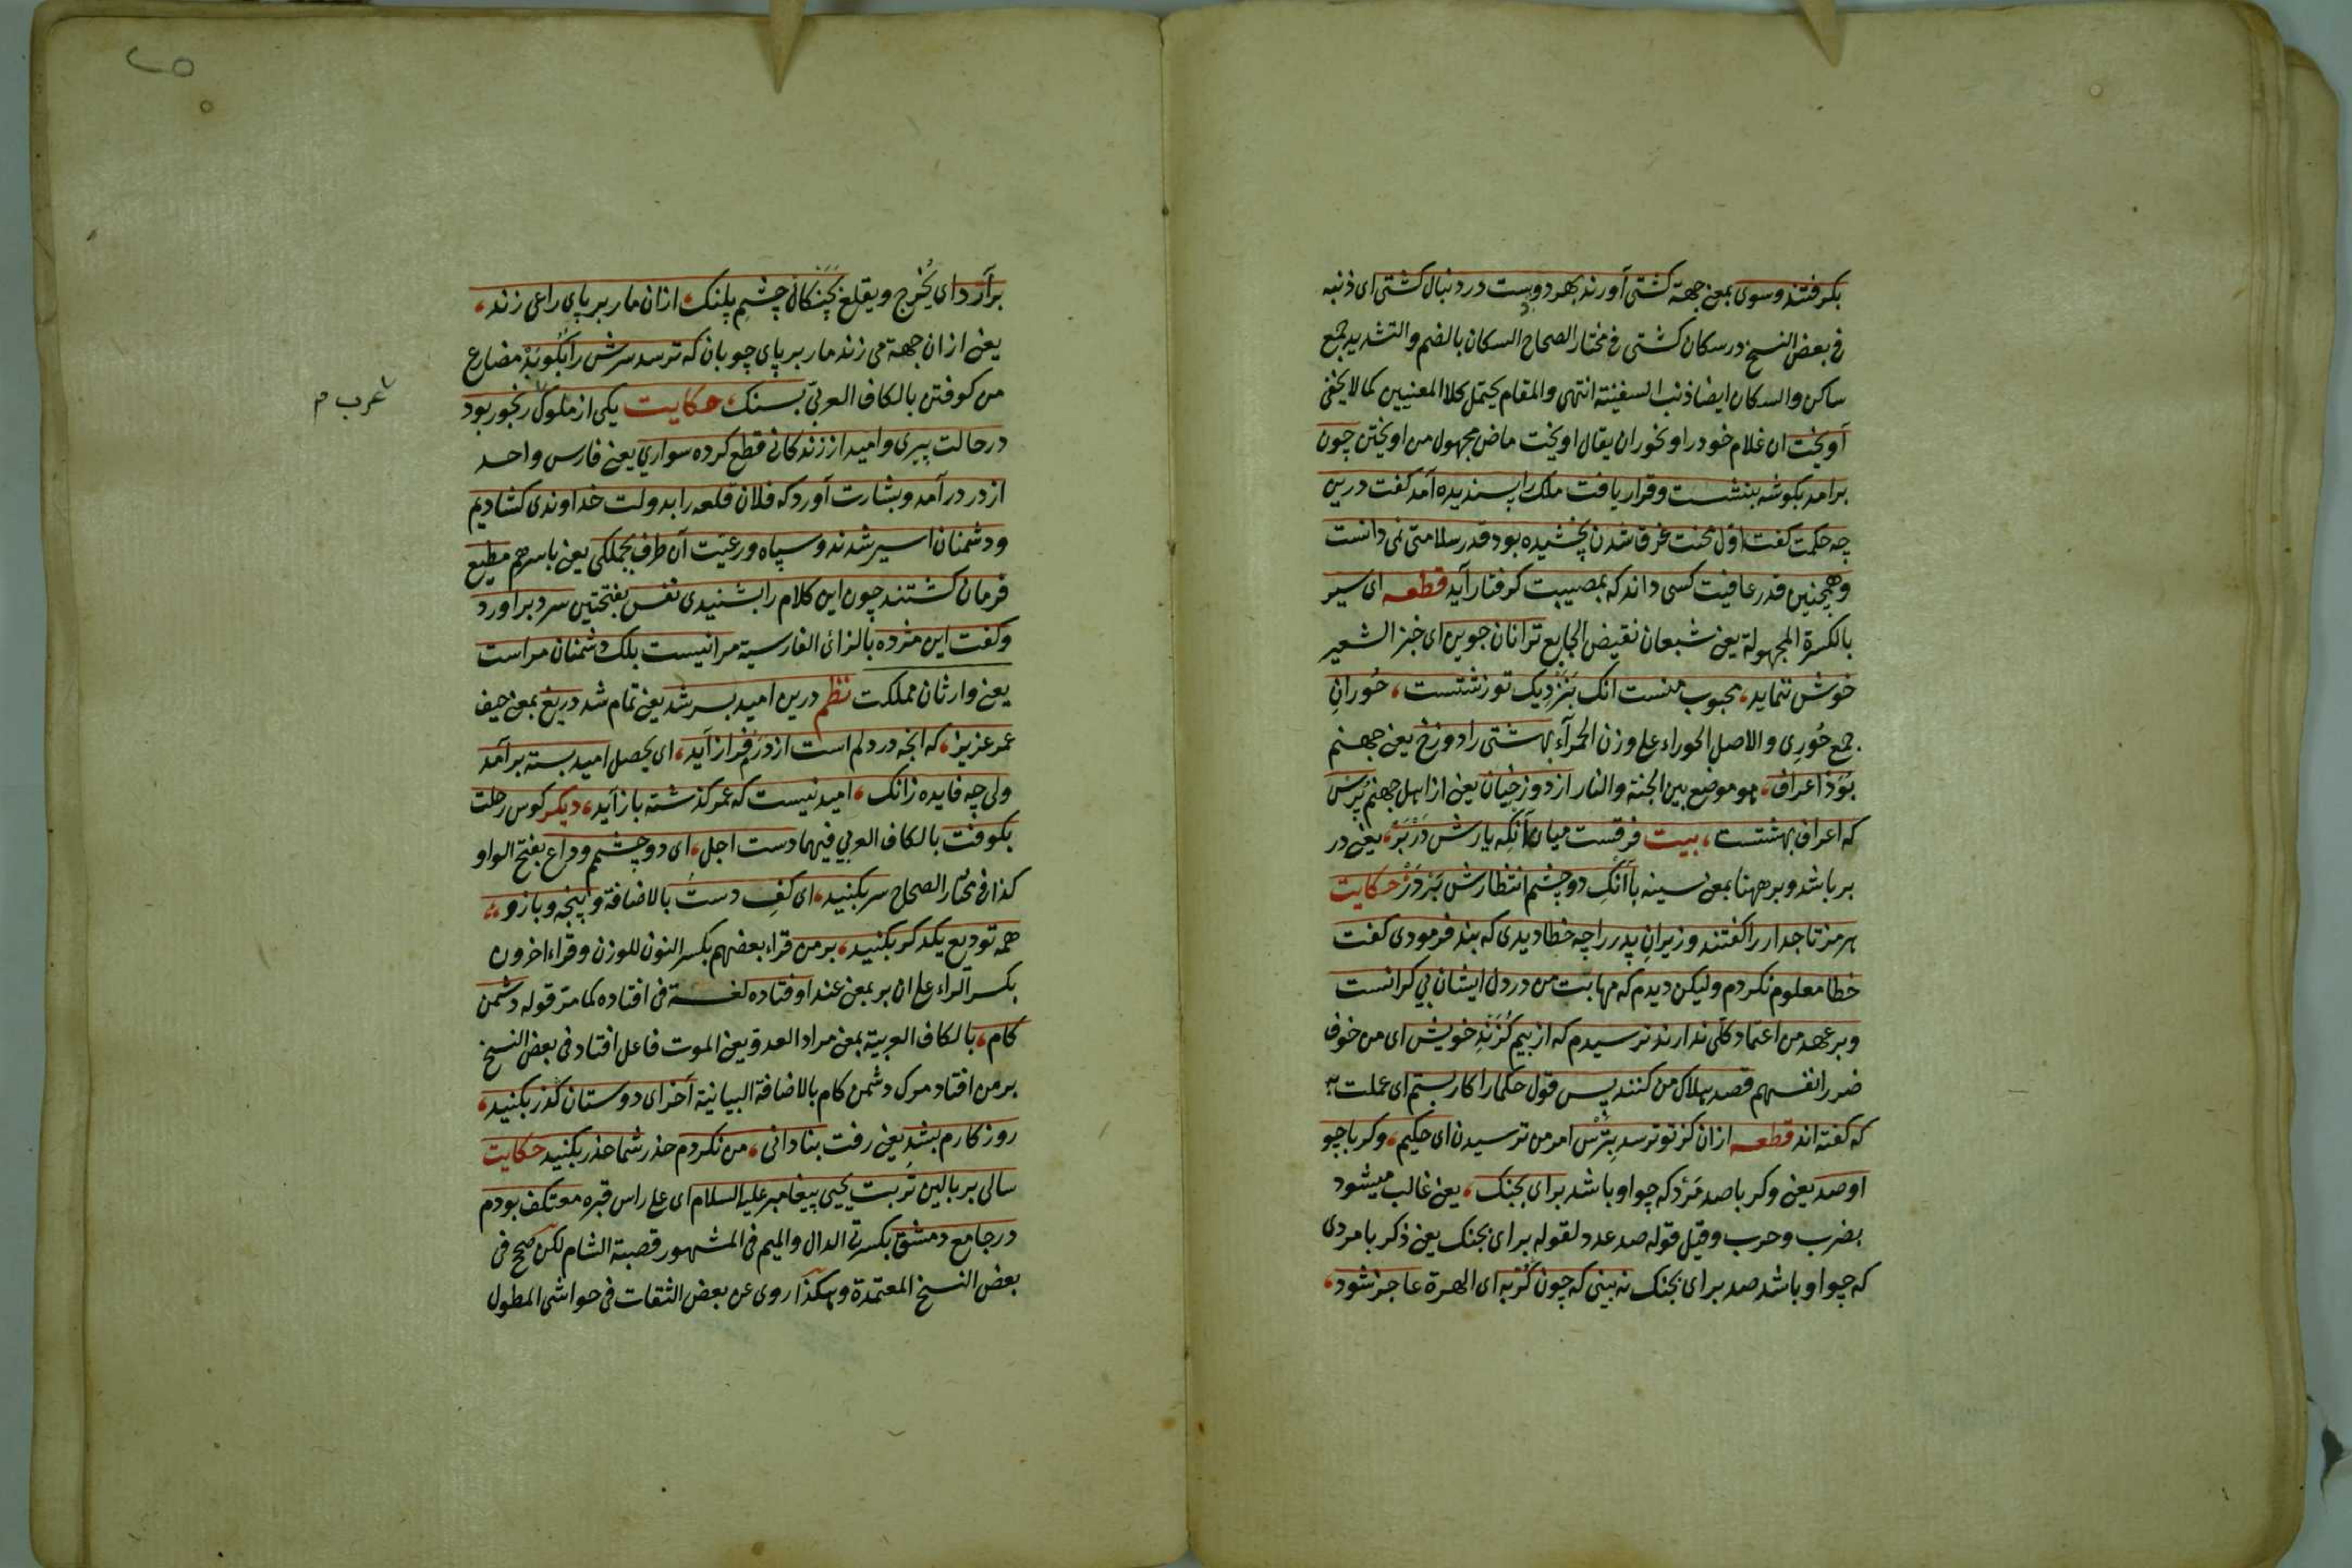 بكرفتند وسوى بمعنى جهة كشتى آورند بهر دو دست در دنبال كشتى اى ذنبه
فى بعض النسخ در سكان كشتى فى مختار الصحاح السكان بالضم والتشديد جمع
ساكن والسكان ايضا ذنب السفينة انتهى والمقام يحتمل كلا المعنيين كما لا يخفى
آويخت ان غلام خود را وبخوران يقال اويخت ماض مجهول من اويختن چون
برامد بكوشه بنشست وقرار يافت ملك را پسنديده آمد كفت درين
چه حكمت كفت اول محنت غرق شدن نچشيده بود قدر سلامتى نمى دانست
وهمچنين قدر عافيت كسى داند كه بمصيبت كرفتار آيد قطعه اى سير
بالكسرة المجهولة يعنى شبعان نقيض الجايع ترا نان جوين اى خبز الشعير
خوش ننمايد، محبوب منست انك بَنَزْدِيك تو زشتست، حُورانِ
جمع حُورِى والاصل الحوراء على وزن الحمرآء بهشتى را دوزخ يعنى جهنم
بُوَدْ اعراف، هو موضع بين الجنة والنار از دوزخيان يعنى از اهل جهنم پُرْس
كه اعراف بهشتست، بيت فرقست ميان آنكه يارش دَرْ بَرْ، يعنى در
بر باشد وبر ههنا بمعنى سينه با آنكِ دو چشم انتظارش بَرْ دَرْ حكايت
هرمز تاجدار را كفتند وزيرانِ پدر را چه خطا ديدى كه بند فرمودى كفت
خطا معلوم نكردم وليكن ديدم كه مهابت من در دل ايشان بى كرانست
وبر عهد من اعتماد كلى ندارند ترسيدم كه از بيم كَزَنْدِ خويش اى من خوف
ضرر انفسهم قصد هلاك من كنند پس قول حكما را كار بستم اى عملت به
كه كفته اند قطعه ازان كز تو ترسد بِتَرْس امر من ترسيدن اى حكيم، وكر با چو
او صد يعنى وكر با صد مَرْد كه چو او باشد براى بجنك، يعنى غالب ميشود
بضرب وحرب وقيل قوله صد عدد لقوله براى بجنك يعنى ذكر با مردى
كه چو او باشد صد براى بجنك نه بينى كه چون كُرْبه اى الهرة عاجز شود،
برآرَد اى يُخْرِج ويقلع بَچَنْكالْ چشمِ پلنك، ازان مار بر پاى راعى زند،
يعنى ازان جهة مى زند مار بر پاى چوبان كه ترسد سرش را بكُوبَدْ مضارع
من كوفتن بالكاف العربى بسنك، حكايت يكى از ملوك رنجور بود
عرب م
در حالت پيرى واميد از زندكانى قطع كرده سوارى يعنى فارس واحد
از در درآمد وبشارت آورد كه فلان قلعه را بدولت خداوندى كشاديم
ودشمنان اسير شدند وسپاه ورعيت آن طرف بجملكى يعنى باسرهم مطيع
فرمان كشتند چون اين كلام را بشنيدى نفس بفتحتين سرد براورد
وكفت اين مژده بالزائ الفارسية مرا نيست بلك دشمنان مراست
يعنى وارثان مملكت نظم درين اميد بسر شد يعنى تمام شد دريغ بمعنى حيف
عمر عزيز، كه انچه در دلم است از دَرَم فراز آيد، اى يحصل اميد بسته برآمد
ولى چه فايده زانك، اميد نيست كه عمر كذشته باز آيد، ديكر كوس رحلت
بكوفت بالكاف العربى فيهما دست اجل، اى دو چشم وداع بفتح الواو
كذا فى مختار الصحاح سر بكنيد، اى كفِ دست بالاضافة وپنجه وبازو،
همه توديع يكدكر بكنيد، بر من قراء بعضهم بكسر النون للوزن وقراء اخرون
بكسر الراء على ان بر بمعنى عند اوفتاده لغة فى افتاده كما مر قوله دشمن
كام، بالكاف العربية بمعنى مراد العدو يعنى الموت فاعل افتاد فى بعض النسخ
بر من افتاد مرك دشمن كام بالاضافة البيانية آخر اى دوستان كذر بكنيد،
روزكارم بشدِ يعنى رفت بنادانى، من نكردم حذر شما حذر بكنيد حكايت
سالى بر بالين تربت يحيى پيغامبر عليه السلام اى على راس قبره معتكف بودم
در جامع دمشق بكسرتى الدال والميم فى المشهور قصبة الشام لكن صح فى
بعض النسخ المعتمدة وهكذا روى عن بعض الثقات فى حواشى المطول